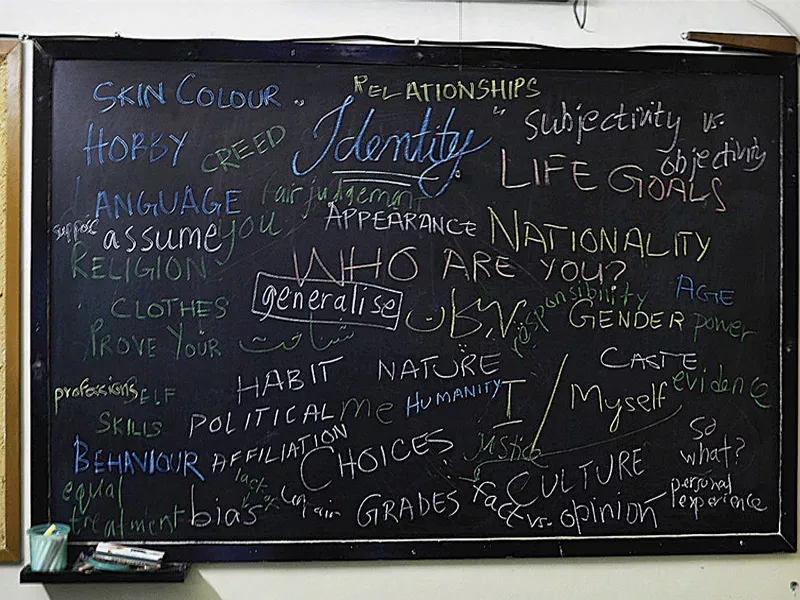 RELATIONSHIPS
SKIN COLOUR
Identity
Subjectivity vs. objectivity
HOBBY
CREED
LIFE GOALS
LANGUAGE
fair judgement
suppose
assume
you
APPEARANCE
NATIONALITY
RELIGION
WHO ARE YOU?
AGE
generalise
responsibility
CLOTHES
GENDER
power
PROVE YOUR
SELF
شناخت
HABIT
NATURE
CASTE
professions
HUMANITY
I / Myself
evidence
SKILLS
POLITICAL
AFFILIATION
me
justice
so what?
BEHAVIOUR
CHOICES
CULTURE
equal
treatment
lack of
bias
GRADES
fact vs. opinion
personal
experience